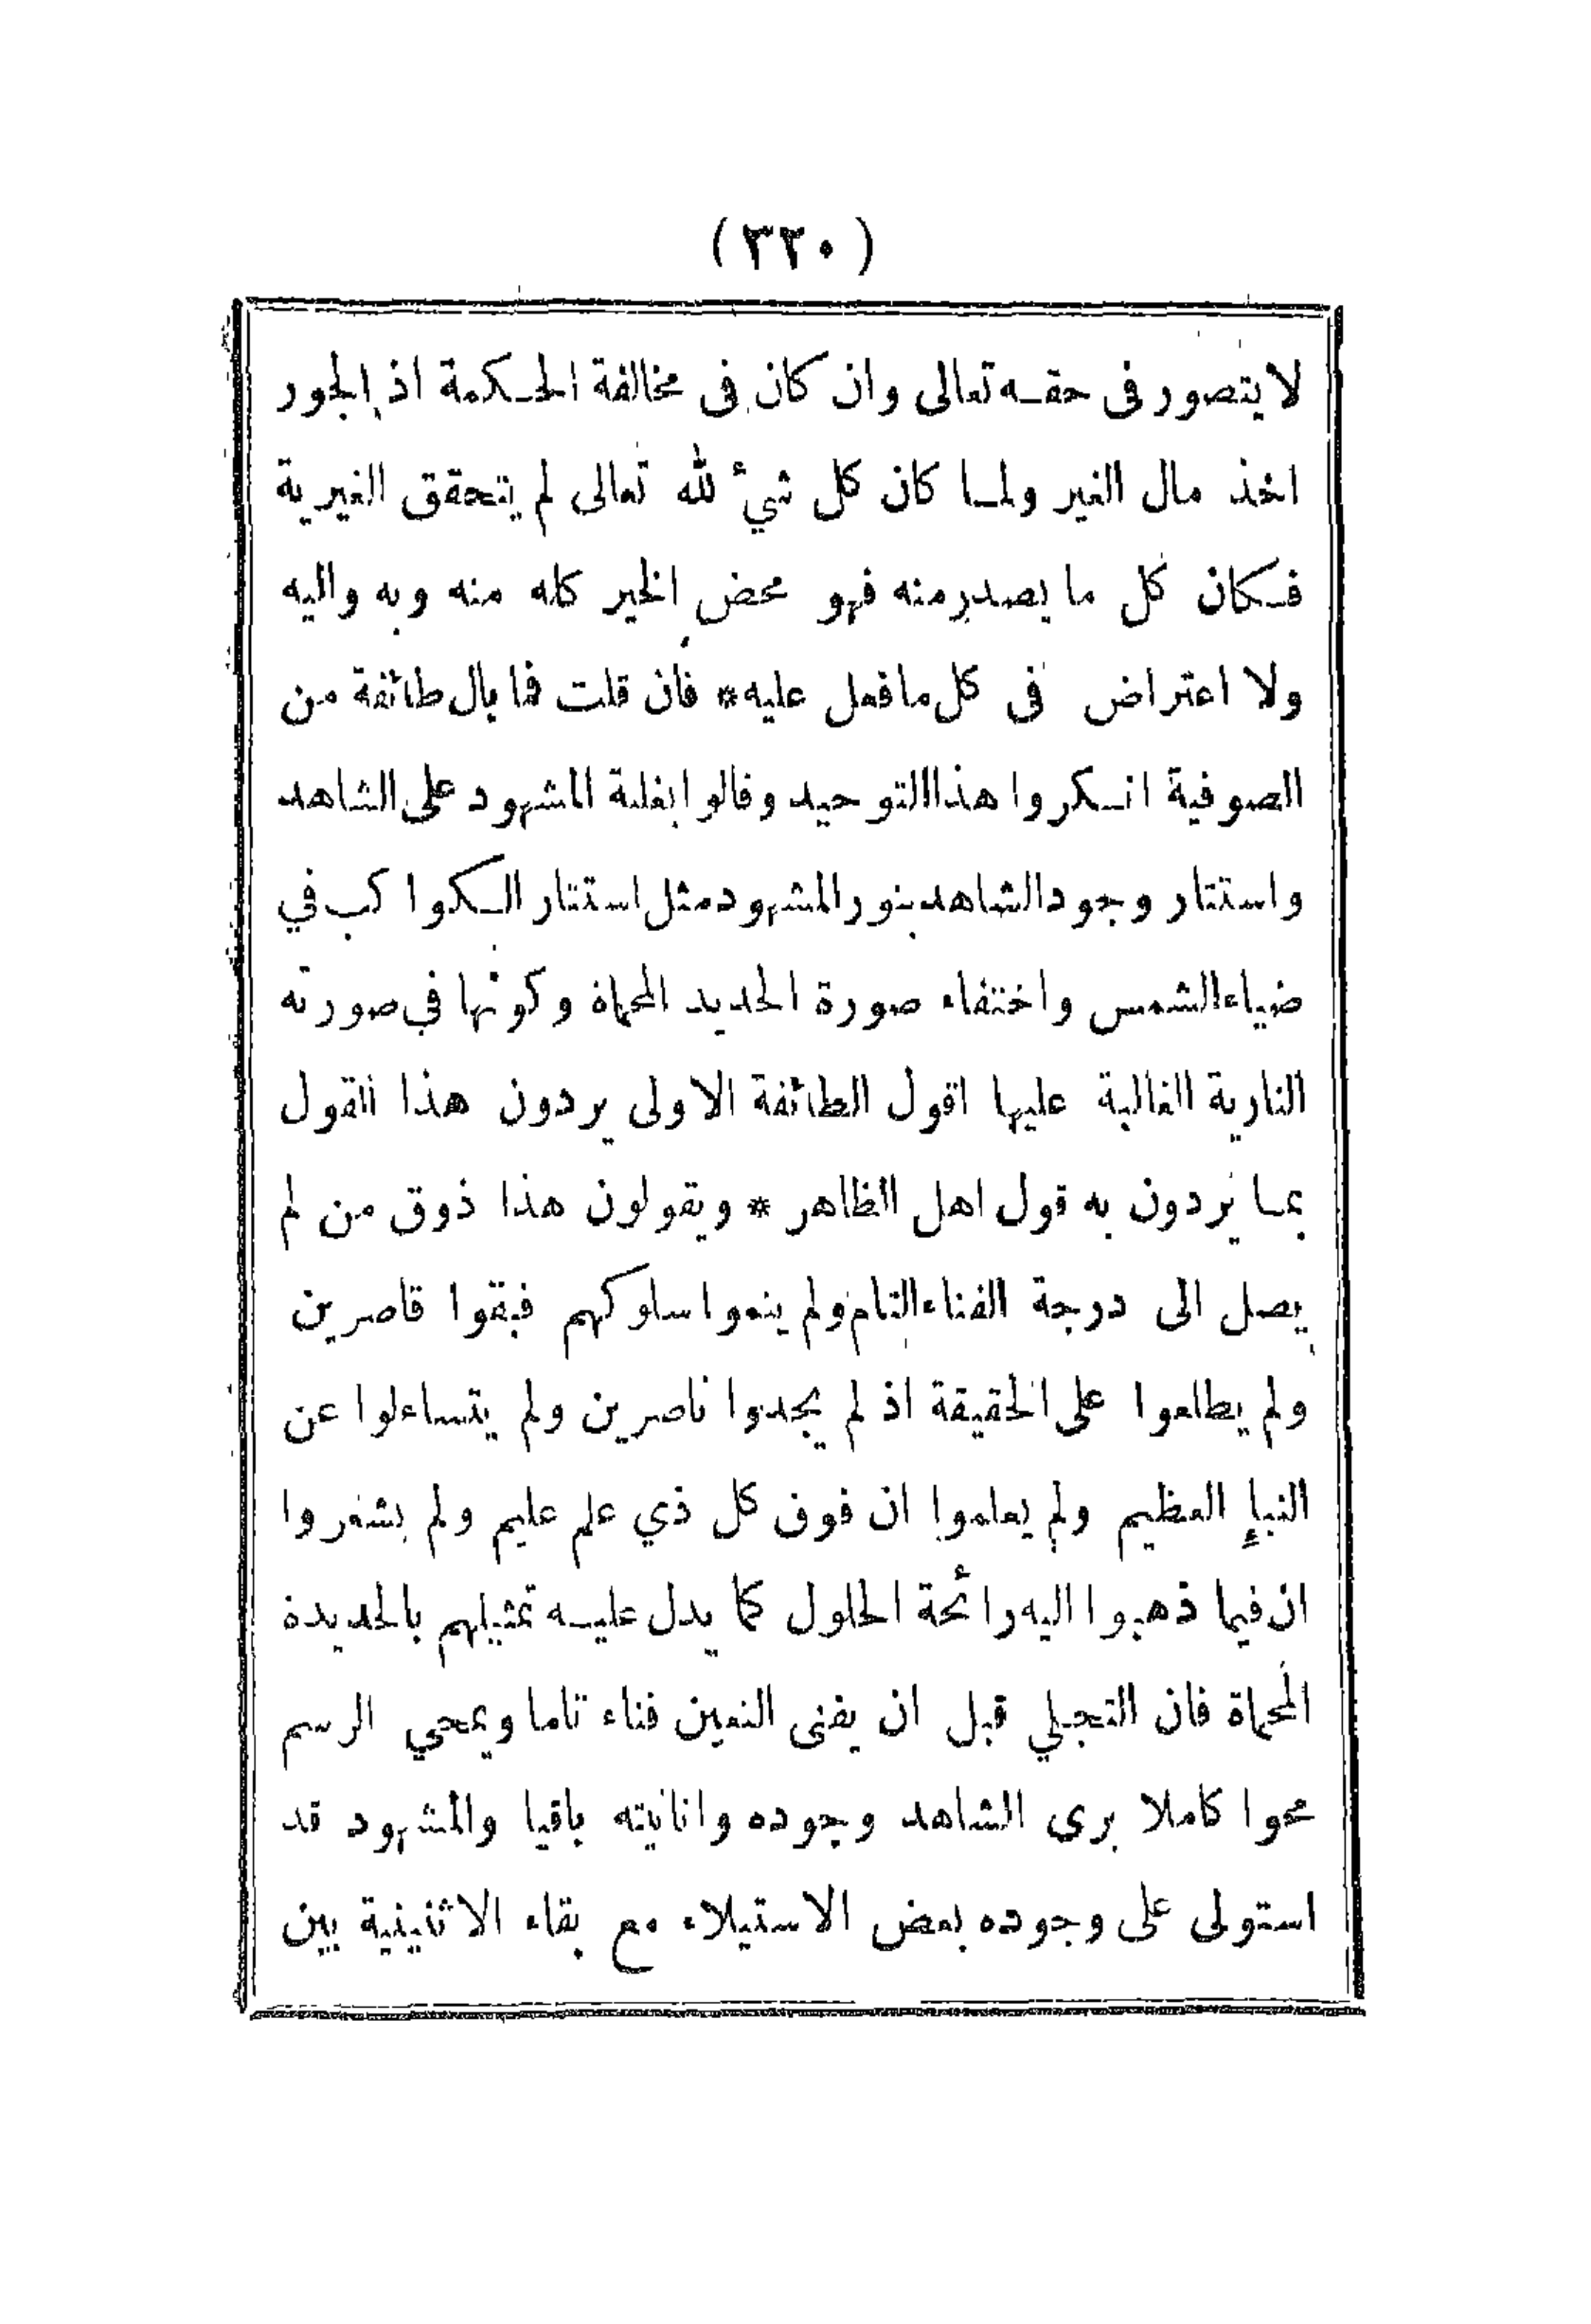 (٣٢٠)
لا يتصور فى حقه تعالى وان كان فى مخالفة الحكمة اذ الجور
اخذ مال الغير ولما كان كل شيء لله تعالى لم يتحقق الغيرية
فكان كل ما يصدر منه فهو محض الخير كله منه وبه واليه
ولا اعتراض فى كل ما فعل عليه * فان قلت فما بال طائفة من
الصوفية انكروا هذا التوحيد وقالوا بغلبة المشهود على الشاهد
واستتار وجود الشاهد بنور المشهود مثل استتار الكواكب في
ضياء الشمس واختفاء صورة الحديد المحماة وكونها في صورته
النارية الغالبة عليها اقول الطائفة الاولى يردون هذا القول
بما يردون به قول اهل الظاهر * ويقولون هذا ذوق من لم
يصل الى درجة الفناء التام ولم يتموا سلوكهم فبقوا قاصرين
ولم يطلعوا على الحقيقة اذ لم يجدوا ناصرين ولم يتساءلوا عن
النبإ العظيم ولم يعلموا ان فوق كل ذي علم عليم ولم يشعروا
ان فيما ذهبوا اليه رائحة الحلول كما يدل عليه تمثيلهم بالحديدة
المحماة فان التجلي قبل ان يفنى التعين فناء تاما ويمحي الرسم
محوا كاملا يرى الشاهد وجوده وانانيته باقيا والمشهود قد
استولى على وجوده بعض الاستيلاء مع بقاء الاثنينية بين